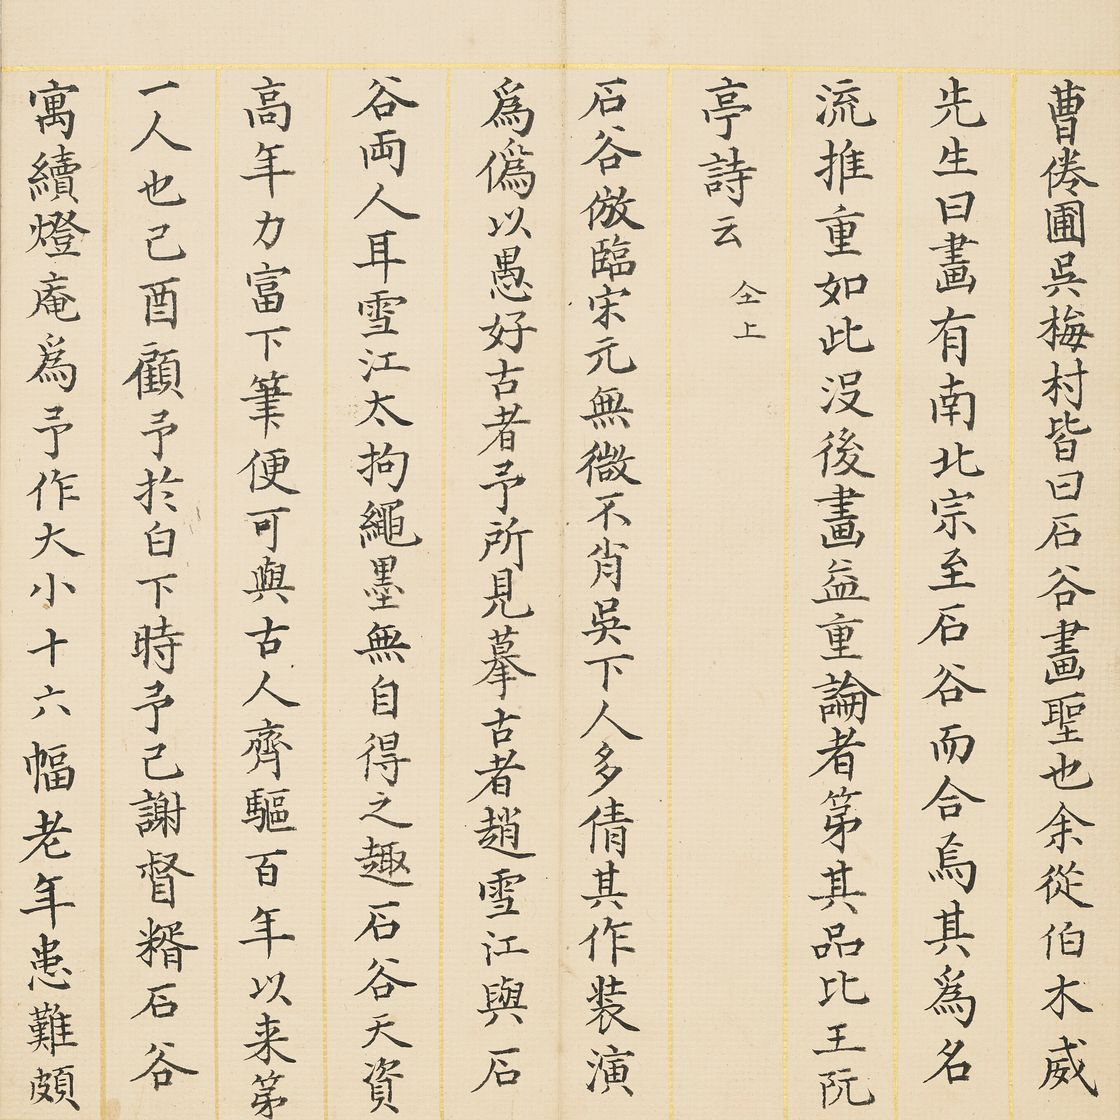 曹倦圃吳梅村皆曰石谷畫聖也余從伯木威
先生曰畫有南北宗至石谷而合焉其為名
流推重如此沒後畫益重論者第其品比王阮
亭詩云 仝上
石谷倣臨宋元無微不肖吳下人多倩其作裝潢
為偽以愚好古者予所見摹古者趙雪江與石
谷兩人耳雪江太拘繩墨無自得之趣石谷天資
高年力富下筆便可與古人齊驅百年以来第
一人也己酉顧予於白下時予己謝督糈石谷
寓續燈庵為予作大小十六幅老年患難頗